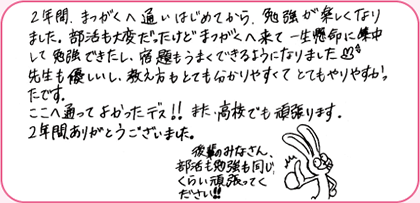 2年間、まつがくへ通いはじめてから、勉強が楽しくなり
ました。部活も大変だったけどまつがくへ来て一生懸命に集中
して勉強できたし、宿題もうまくできるようになりました
先生も優しいし、教え方もとても分かりやすくてとてもやりやすかっ
たです。
ここへ通ってよかったデス!! また、高校でも頑張ります。
2年間ありがとうございました。
後輩のみなさん、
部活も勉強も同じ
くらい頑張ってく
ださい!!